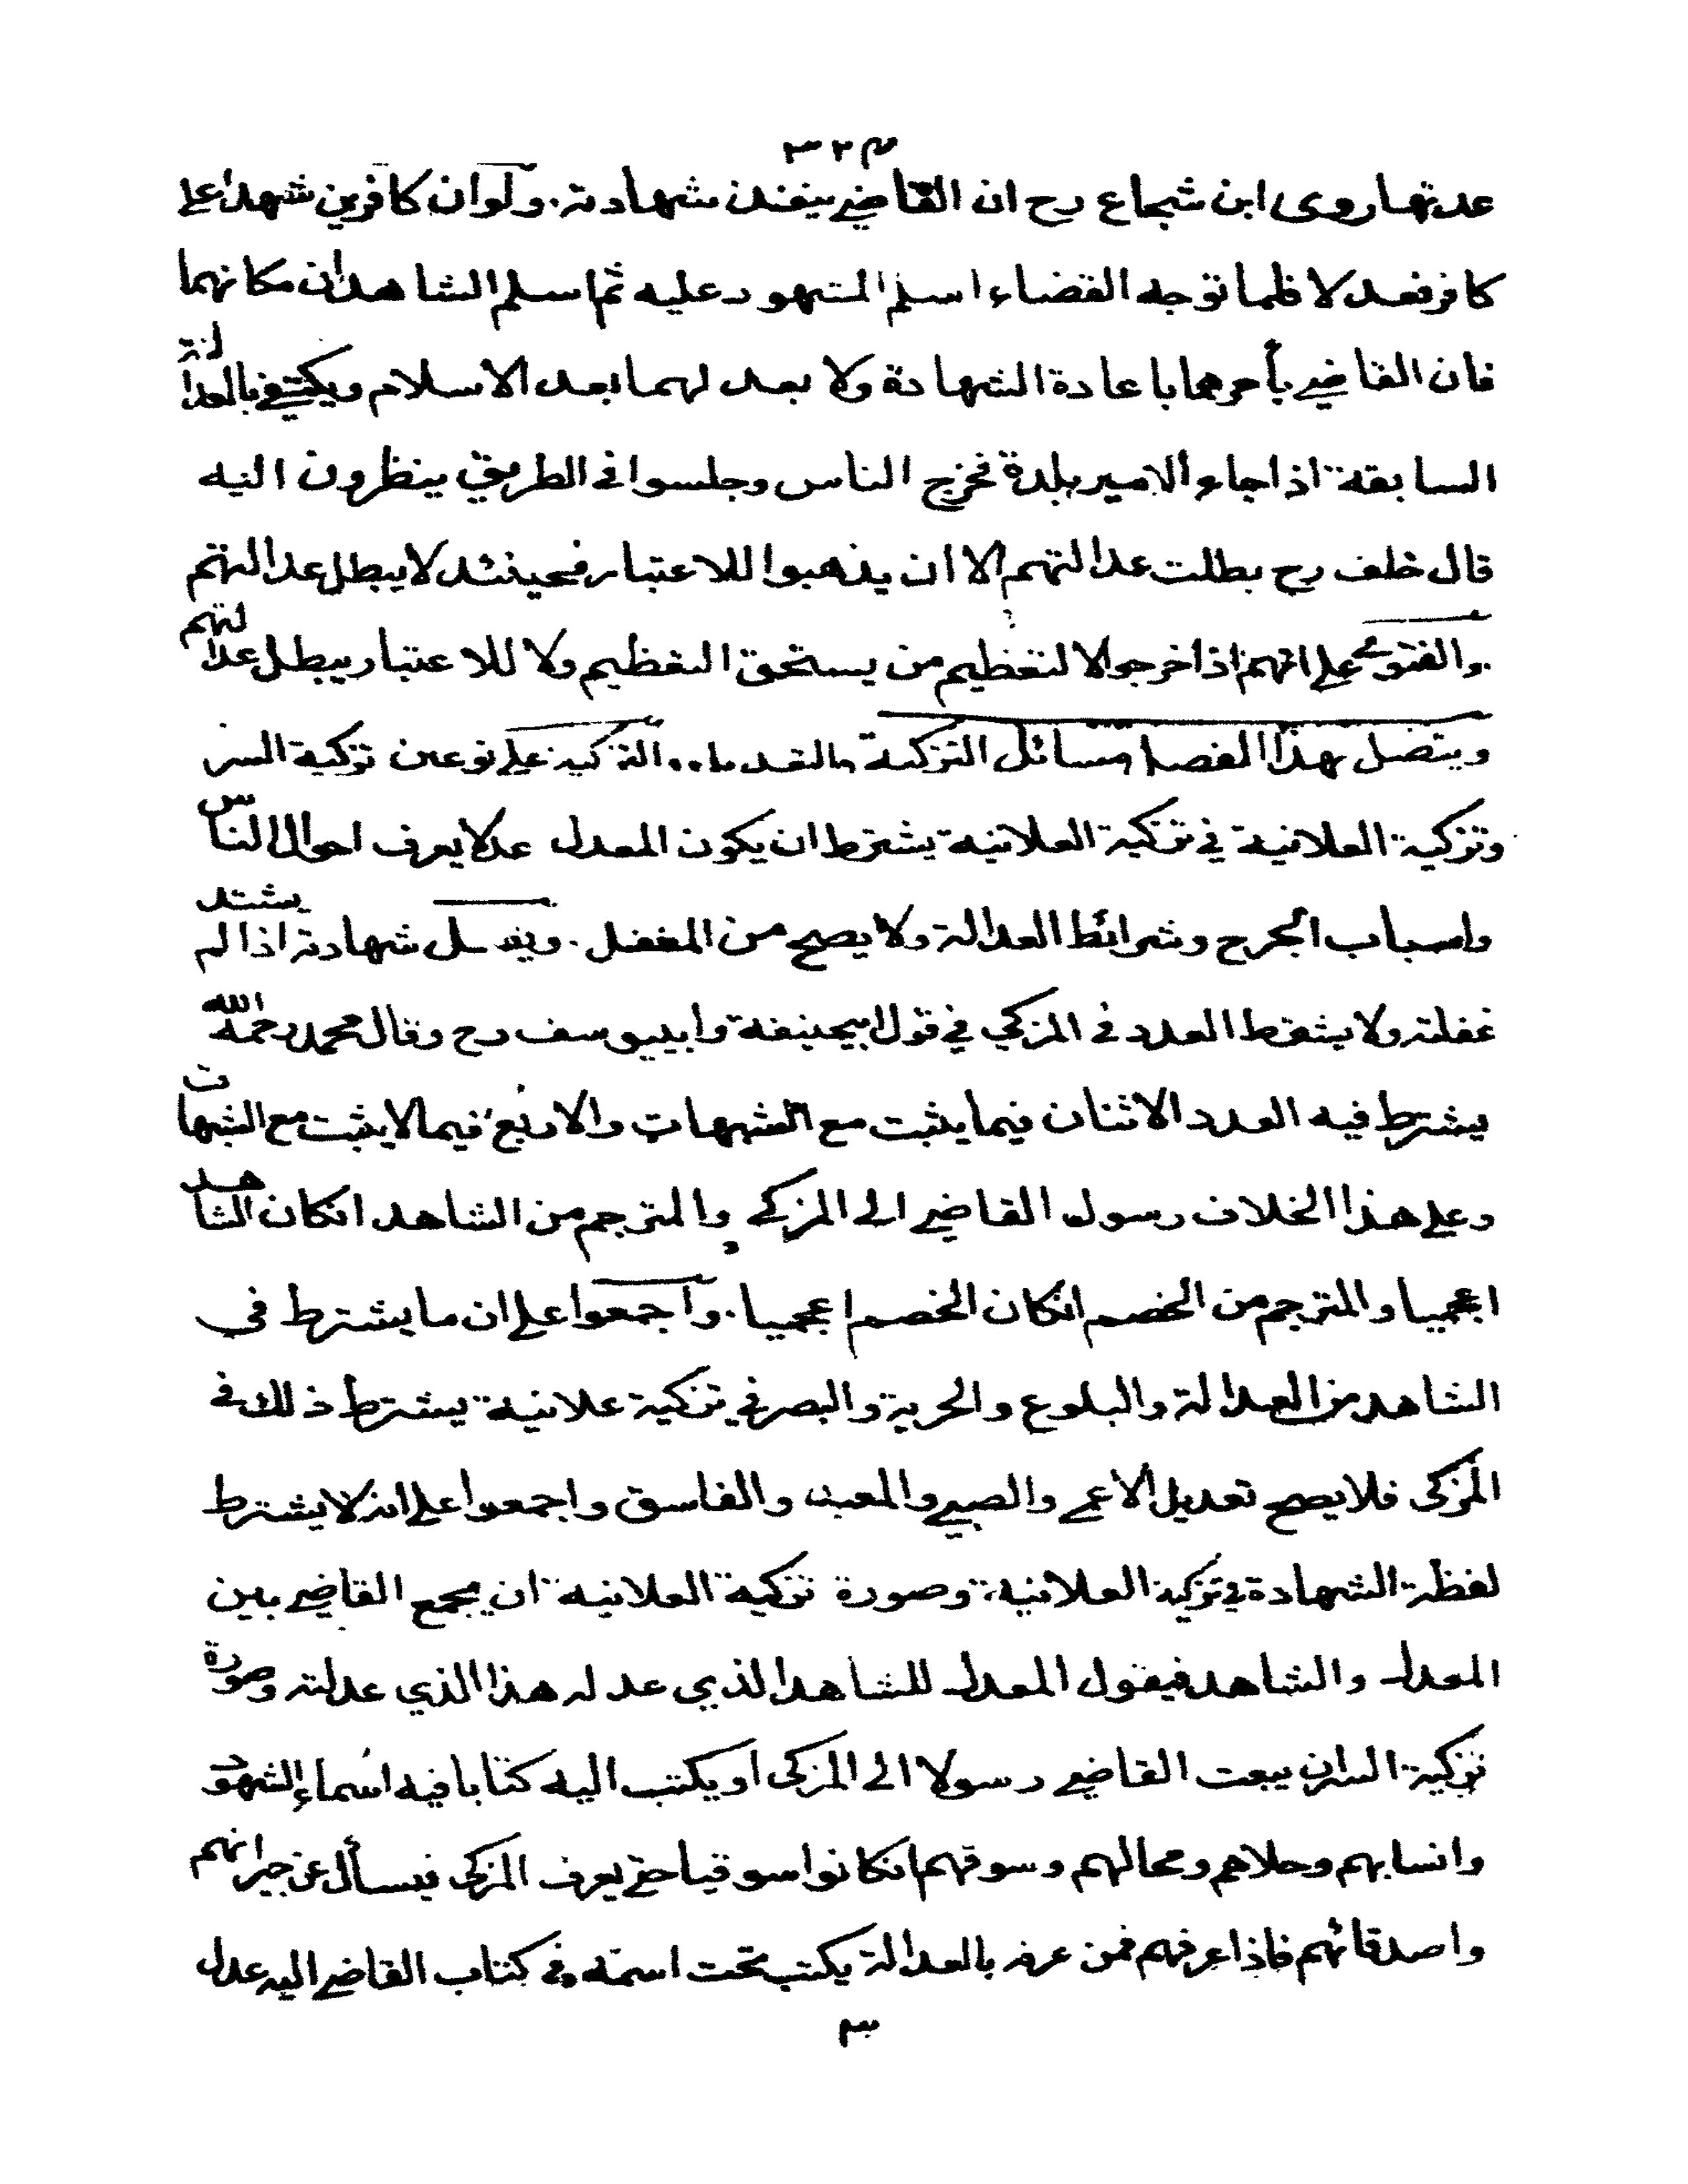 عدتها روى ابن شجاع رح ان القاضي ينفذ شهادته ولو ان كافرين شهدا على
كافر فعدلا فلما توجه القضاء اسلم المشهود عليه ثم اسلم الشاهدان مكانهما
فان القاضي يأمرهما باعادة الشهادة ولا يعدلهما بعد الاسلام ويكتفي بالعدالة
السابقة اذا جاء الامير بلدة فخرج الناس وجلسوا في الطريق ينظرون اليه
قال خلف رح بطلت عدالتهم الا ان يذهبوا للاعتبار فحينئذ لا يبطل عدالتهم
والفتوى على انهم اذا خرجوا لا لتعظيم من يستحق التعظيم ولا للاعتبار يبطل عدالتهم
ويتصل بهذا الفصل مسائل التزكية والتعديل التزكية على نوعين تزكية السر
وتزكية العلانية في تزكية العلانية يشترط ان يكون المعدل عدلا يعرف احوال الناس
واسباب الجرح وشرائط العدالة ولا يصح من المغفل ويقبل شهادته اذا لم يشتد
غفلته ولا يشترط العدد في المزكي في قول ابيحنيفة وابييوسف رح وقال محمد رحمه الله
يشترط فيه العدد الاثنان فيما يثبت مع الشبهات والاربع فيما لا يثبت مع الشبهات
وعلى هذا الخلاف رسول القاضي الى المزكي والمترجم من الشاهد انكان الشاهد
اعجميا والمترجم من الخصم انكان الخصم اعجميا واجمعوا على ان ما يشترط في
الشاهد من العدالة والبلوغ والحرية والبصر في تزكية علانية يشترط ذلك في
المزكى فلا يصح تعديل الاعمى والصبي والعبد والفاسق واجمعوا على انه لا يشترط
لفظة الشهادة في تزكية العلانية وصورة تزكية العلانية ان يجمع القاضي بين
المعدل والشاهد فيقول المعدل للشاهد الذي عدله هذا الذي عدلته وصورة
تزكية السر ان يبعث القاضي رسولا الى المزكى او يكتب اليه كتابا فيه اسماء الشهود
وانسابهم وحلاهم ومحالهم وسوقهم انكانوا سوقيا حتى يعرف المزكى فيسأل عن جيرانهم
واصدقائهم فاذا عرفهم فمن عرفه بالعدالة يكتب تحت اسمه في كتاب القاضي اليه عدل